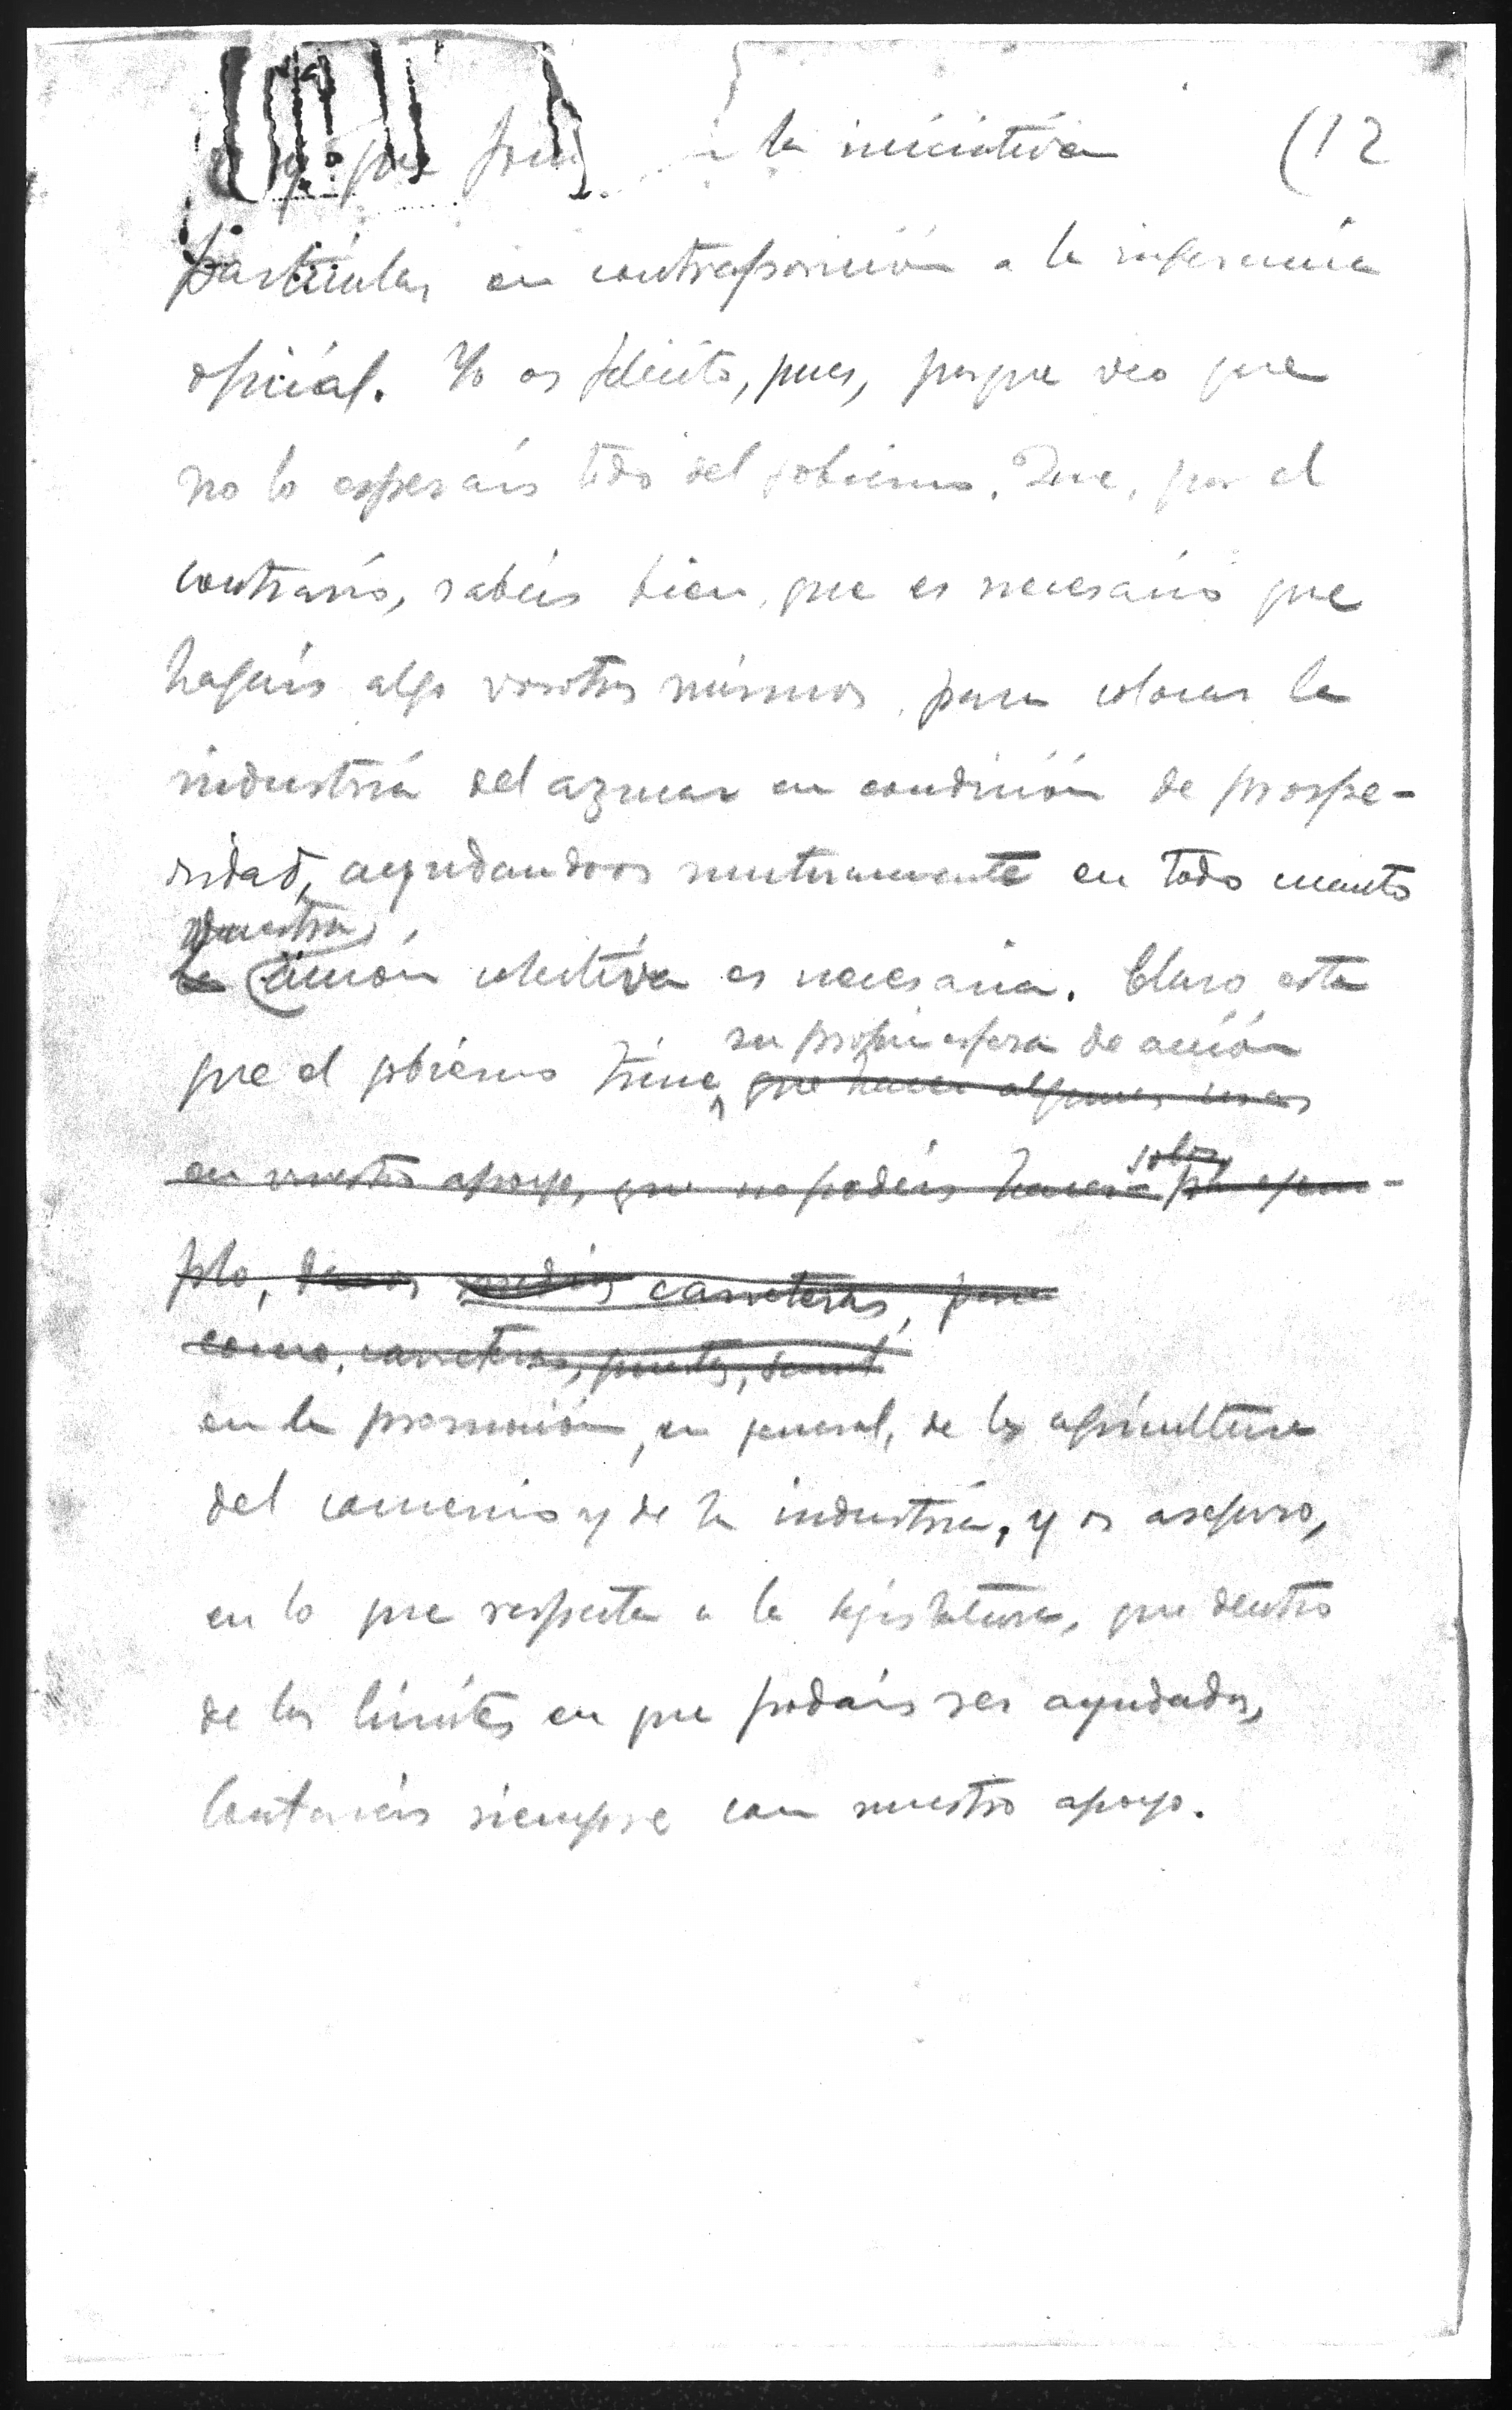 que a la iniciativa (12
particular en contraposición a la ingerencia
oficial. Yo os felicito, pues, porque veo que
no lo esperáis todo del gobierno. Que, por el
contrario, sabéis bien, que es necesario que
hagáis algo vosotros mismos, para colocar la
industria del azucar en condición de prospe-
ridad, ayudandoos mutuamente en todo cuanto
vuestra
la acción colectiva es necesaria. Claro esta
su propia esfera de acción
que el gobierno tiene que hacer algunas cosas
solos
en vuestro apoyo, que no podéis hacer por ejem-
plo, carreteras, pero
como, carreteras, puertos,
en la promoción, en general, de la agricultura
del comercio y de la industria, y os aseguro,
en lo que respecta a la legislatura, que dentro
de los límites en que podáis ser ayudados,
Contaréis siempre con nuestro apoyo.